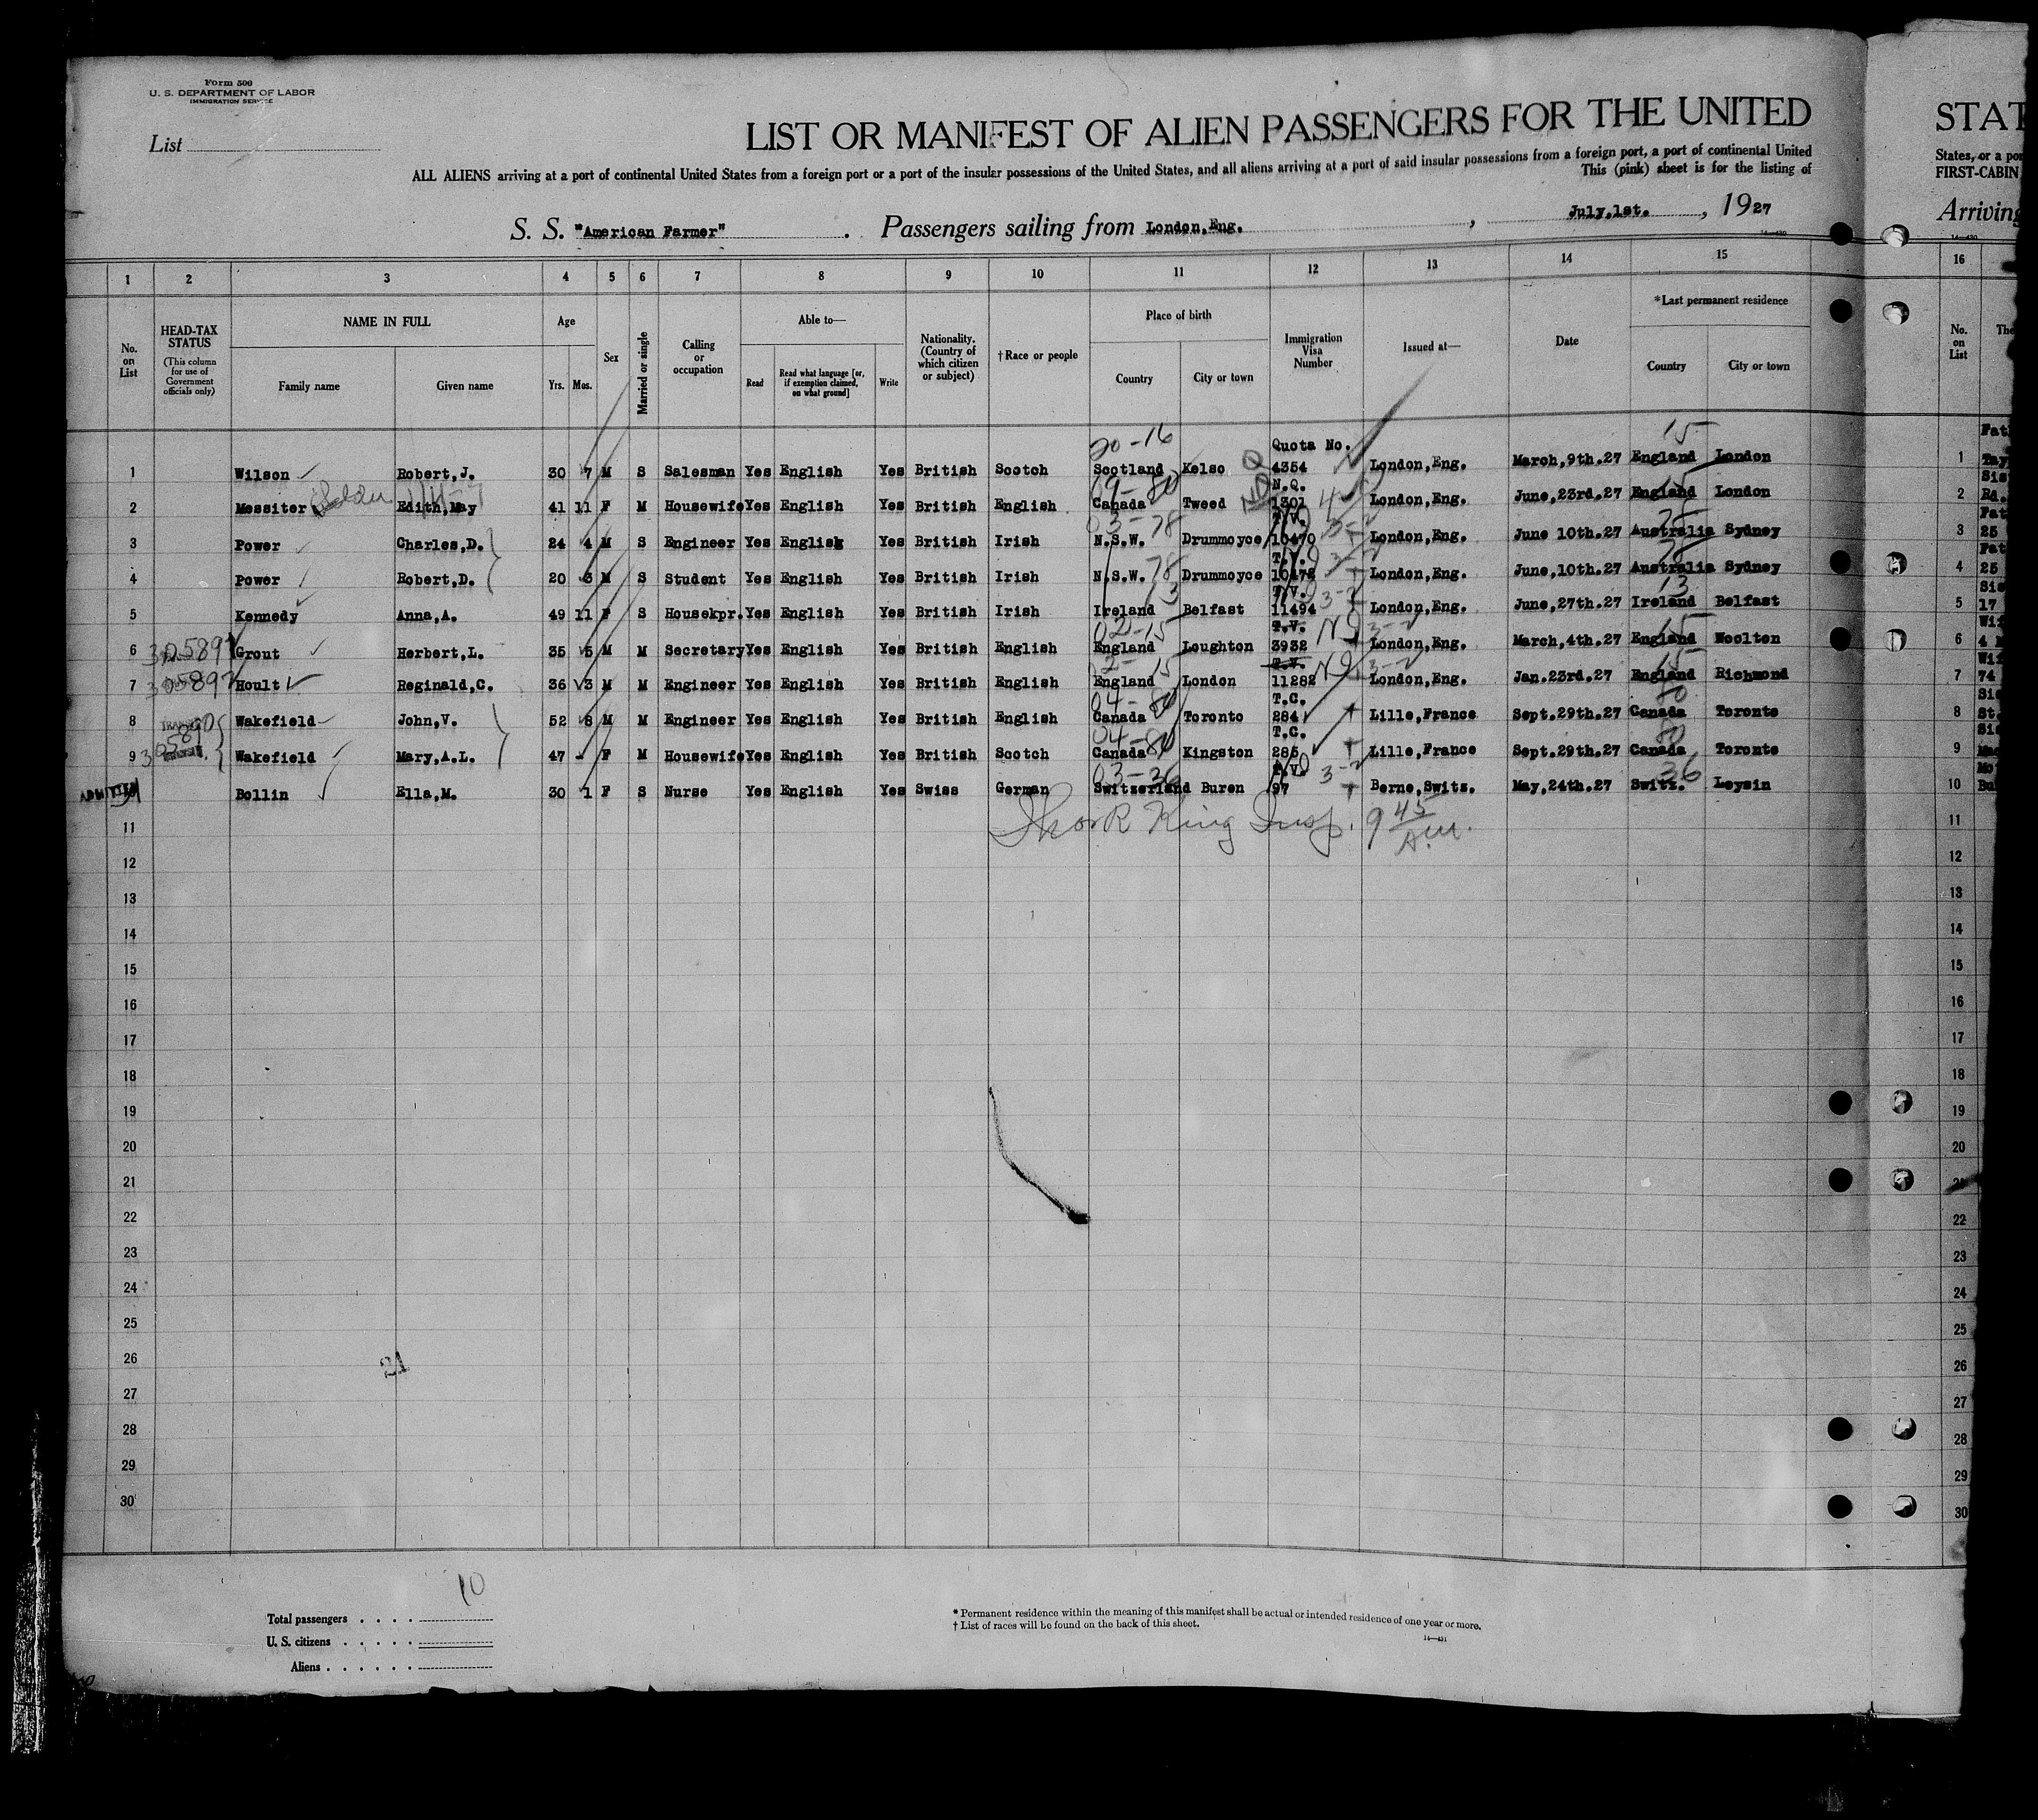 Form 500
U. S. DEPARTMENT OF LABOR
IMMIGRATION SERVICE
List
LIST OR MANIFEST OF ALIEN PASSENGERS FOR THE UNITED
STAT
ALL ALIENS arriving at a port of continental United States from a foreign port or a port of the insular possessions of the United States, and all aliens arriving at a port of said insular possessions from a foreign port, a port of continental United
States, or a por
This (pink) sheet is for the listing of
FIRST-CABIN
S. S. "American Farmer". Passengers sailing from London,Eng. , July,1st. , 1927
Arriving
1 2 3 4 5 6 7 8 9 10 11 12 13 14 15 16
No. on List
HEAD-TAX STATUS (This column for use of Government officials only)
NAME IN FULL
Family name Given name
Age
Yrs. Mos.
Sex
Married or single
Calling or occupation
Able to—
Read Read what language [or, if exemption claimed, on what ground] Write
Nationality. (Country of which citizen or subject)
†Race or people
Place of birth
Country City or town
Immigration Visa Number
Issued at—
Date
*Last permanent residence
Country City or town
No. on List
The
20-16 Quota No. 15 Fat
1 Wilson Robert,J. 30 7 M S Salesman Yes English Yes British Scotch Scotland Kelso 4354 London,Eng. March,9th.27 England London 1 Tay
N.Q. Sis
2 Messiter Edith,May 41 11 F M Housewife Yes English Yes British English Canada Tweed 1301 London,Eng. June,23rd.27 England London 2 Rd.
03-78 T.V. Fat
3 Power Charles,D. 24 4 M S Engineer Yes English Yes British Irish N.S.W. Drummoyce 10470 London,Eng. June 10th.27 Australia Sydney 3 25
78 T.V. 3-2 78 Fat
4 Power Robert,D. 20 3 M S Student Yes English Yes British Irish N.S.W. Drummoyce 10472 London,Eng. June,10th.27 Australia Sydney 4 25
13 T.V. 3-2 13 Sis
5 Kennedy Anna,A. 49 11 F S Housekpr. Yes English Yes British Irish Ireland Belfast 11494 London,Eng. June,27th.27 Ireland Belfast 5 17
02-15 T.V. 3-2 15 Wif
6 Grout Herbert,L. 35 5 M M Secretary Yes English Yes British English England Loughton 3932 London,Eng. March,4th.27 England Woolton 6 4
15 T.V. 3-2 15 Wif
7 Hoult Reginald,C. 36 3 M M Engineer Yes English Yes British English England London 11282 London,Eng. Jan.23rd.27 England Richmond 7 74
04-80 T.C. 80 Sis
8 Wakefield John,V. 52 8 M M Engineer Yes English Yes British English Canada Toronto 284 Lille,France Sept.29th.27 Canada Toronto 8 St.
04-80 T.C. 80 Sis
9 Wakefield Mary,A.L. 47 - F M Housewife Yes English Yes British Scotch Canada Kingston 285 Lille,France Sept.29th.27 Canada Toronto 9
03-36 T.V. 3-2 36 Mo
ADMITTED Bollin Ella,M. 30 1 F S Nurse Yes English Yes Swiss German Switzerland Buren 97 Berne,Switz. May,24th.27 Switz. Leysin 10
11 King Insp. 9 45 A.M. 11
12 12
13 13
14 14
15 15
16 16
17 17
18 18
19 19
20 20
21
22 22
23 23
24 24
25 25
26 26
27 27
28 28
29 29
30 30
10
Total passengers . . . .
U. S. citizens . . . . .
Aliens . . . . . .
* Permanent residence within the meaning of this manifest shall be actual or intended residence of one year or more.
† List of races will be found on the back of this sheet.
14—431